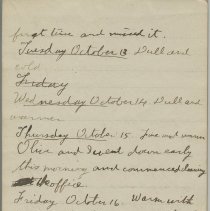 first time and missed it.
Tuesday October 13 Dull and
cold
Friday
Wednesday October 14. Dull and
warmer
Thursday October 15. Fine and warm
Olive and I went down early
this morning and commenced
the office
Friday October 16. Warm with